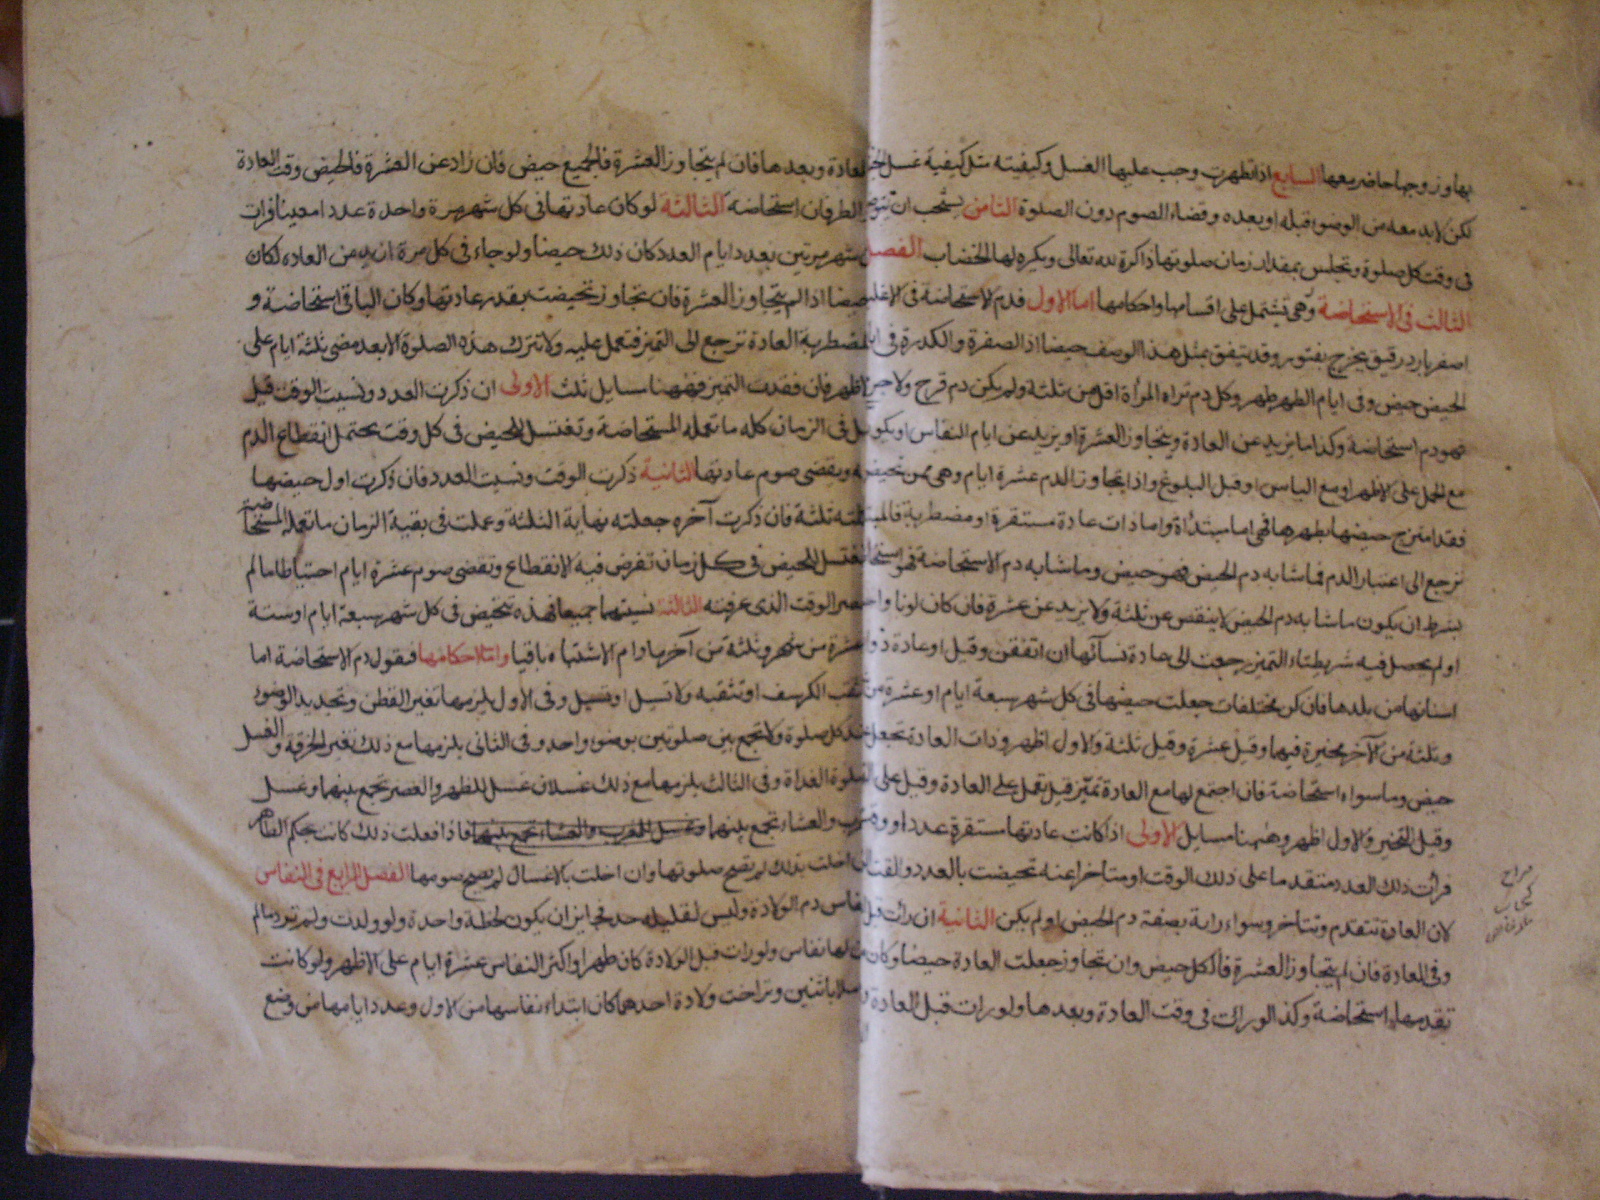 بها وزوجها حاضر معها السابع اذا تطهرت وجب عليها الغسل وكيفيته مثل كيفية غسل
لكن لا بد معه من الوضوء قبله او بعده وقضاء الصوم دون الصلوة الثامن يستحب ان
فى وقت كل صلوة وتجلس بمقدار زمان صلوتها ذاكرة لله تعالى ويكره لها الخضاب الفصل
الثالث فى الاستحاضة وهى تشتمل على اقسامها واحكامها اما الاول فدم الاستحاضة فى الاغلب
اصفر بارد رقيق يخرج بفتور وقد يتفق بمثل هذا الوصف حيضا اذ الصفرة والكدرة فى
الحيض حيض وفى ايام الطهر طهر وكل دم تراه المرأة اقل من ثلثة ولم يكن دم قرح ولا جرح
فهو دم استحاضة وكذا ما يزيد عن العادة ويتجاوز العشرة او يزيد عن ايام النفاس او يكون
مع الحمل على الاظهر او مع الياس او قبل البلوغ واذا يتجاوز الدم عشرة ايام وهى ممن تحيض
فقد امتزج حيضها بطهرها فهى اما مبتدأة واما ذات عادة مستقرة او مضطربة
ترجع الى اعتبار الدم فما شابه دم الحيض فهو حيض وما شابه دم الاستحاضة فهو
بشرط ان يكون ما شابه دم الحيض لا ينقص عن ثلثة ولا يزيد عن عشرة فان كان لونا
او لم يحصل فيه شريطتاء التميز رجعت الى عادة نسآئها ان اتفقن وقيل او عادة
اسنانها من بلدها فان كن مختلفات جعلت حيضها فى كل شهر سبعة ايام او عشرة من
وثلثة من الآخر مخيرة فيهما وقيل عشرة وقيل ثلثة والاول اظهر وذات العادة تجعل
حيض وما سواه استحاضة فان اجتمع لها مع العادة تميز قيل تعمل على العادة وقيل على
وقيل التخير والاول اظهر وههنا مسايل الاولى اذا كانت عادتها مستقرة عددا
فرأت ذلك العدد متقدما على ذلك الوقت او متاخرا عنه تحيضت بالعدد والقت
لان العادة تتقدم وتتاخر وسواء رأته بصفة دم الحيض او لم يكن الثانية ان رأت قبل
وفى العادة فان لم يتجاوز العشرة فالكل حيض وان تجاوز جعلت العادة حيضا وكان
تقدمها استحاضة وكذا لو رأت فى وقت العادة وبعدها ولو رات قبل العادة
العادة وبعدها فان لم يتجاوز العشرة فالجميع حيض فان زاد عن العشرة فالحيض وقت العادة
الطرفان استحاضة الثالثة لو كان عادتها فى كل شهر مرة واحدة عددا معينا فرات
شهر مرتين بعدد ايام العدد كان ذلك حيضا ولو جاء فى كل مرة ازيد من العاده لكان
حيضا اذا لم يتجاوز العشرة فان تجاوز تحيضت بقدر عادتها وكان الباقى استحاضة و
المضطربة العادة ترجع الى التميز فتعمل عليه ولا تترك هذه الصلوة الا بعد مضى ثلثة ايام على
الاظهر فان فقدت التميز فههنا مسايل ثلث الاولى ان ذكرت العدد ونسيت الوقت قيل
فى الزمان كله ما تعمله المستحاضة وتغتسل للحيض فى كل وقت يحتمل انقطاع الدم
وتقضى صوم عادتها الثانية ذكرت الوقت ونسيت العدد فان ذكرت اول حيضها
ثلثة فان ذكرت آخره جعلته نهاية الثلثة وعملت فى بقية الزمان ما تعمله المستحاضة
تغتسل للحيض فى كل زمان تفرض فيه الانقطاع وتقضى صوم عشرة ايام احتياطا ما لم
الوقت الذى عرفته الثالثة نسيتهما جميعا فهذه تحيض فى كل شهر سبعة ايام او ستة
عشرة من شهر وثلثة من آخر ما دام الاشتباه باقيا واما احكامها فنقول دم الاستحاضة اما
الكرسف او تثقبه ولا تسيل او تسيل وفى الاول يلزمها تغير القطن وتجديد الوضوء
كل صلوة ولا تجمع بين صلوتين بوضوء واحد وفى الثانى يلزمها مع ذلك تغير الخرقة والغسل
لصلوة الغداة وفى الثالث يلزمها مع ذلك غسلان غسل للظهر والعصر تجمع بينهما وغسل
للمغرب والعشاء تجمع بينهما وغسل للمغرب والعشاء تجمع بينهما فاذا فعلت ذلك كانت بحكم الطاهر
اخلت بذلك لم تصح صلوتها وان اخلت بالاغسال لم يصح صومها الفصل الرابع فى النفاس
النفاس دم الولادة وليس لقليله حد فجايز ان يكون لحظة واحدة ولو ولدت ولم تر دما لم
لها نفاس ولو رات قبل الولادة كان طهرا واكثر النفاس عشرة ايام على الاظهر ولو كانت
حاملا باثنين وتراخت ولادة احدهما كان ابتداء نفاسها من الاول وعدد ايامها من وضع